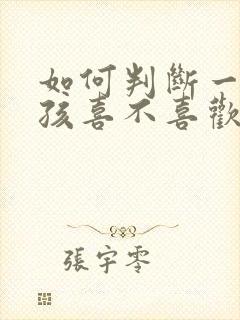 如何判斷一
孩喜不喜歡
張宇零